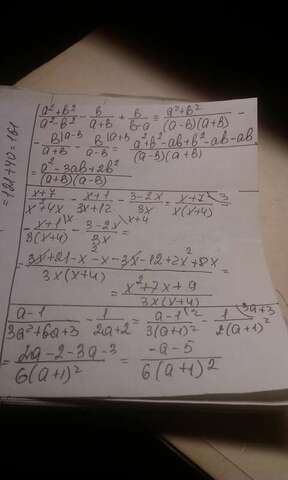 (a²+b²)/(a²-b²) - b/(a+b) + b/(b-a) = (a²+b²)/((a-b)(a+b)) -
- b/(a+b) |a-b - b/(a-b) |a+b = (a²+b²-ab+b²-ab-ab)/((a-b)(a+b))
= (a²-3ab+2b²)/((a+b)(a-b))
(x+7)/(x²+4x) - (x+1)/(3x+12) - (3-2x)/(3x) = (x+7)/(x(x+4)) |3
- (x+1)/(3(x+4)) |x - (3-2x)/(3x) |x+4 =
= (3x+21-x-x-3x-12+2x²+8x)/(3x(x+4)) =
= (x²+7x+9)/(3x(x+4))
(a-1)/(3a²+6a+3) - 1/(2a+2) = (a-1)/(3(a+1)²) |2 - 1/(2(a+1)²) |3a+3
= (2a-2-3a-3)/(6(a+1)²) = (-a-5)/(6(a+1)²)
=121+40=161